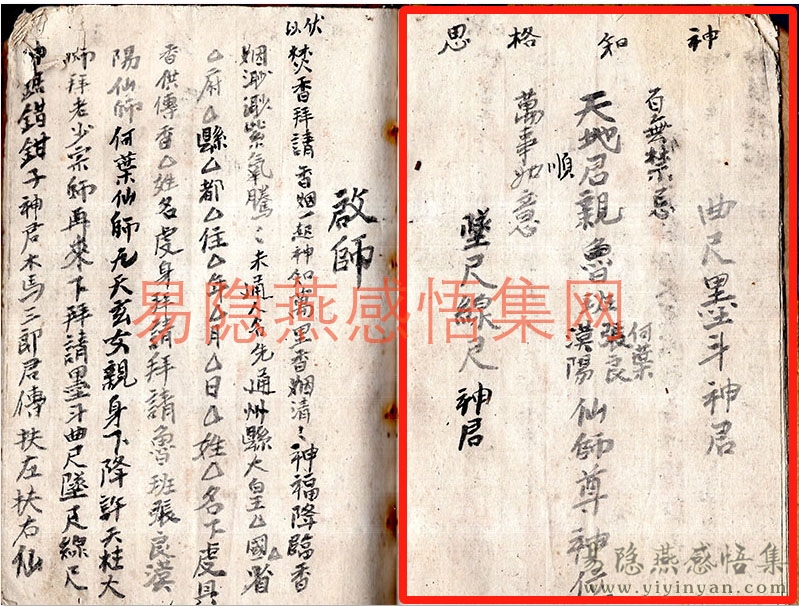 神知格思
曲尺墨斗神君
百無禁忌
何葉
天地君親魯班張良漢陽仙師尊神位
萬事如順意
墜尺線尺神君
啟師
伏以焚香拜請香烟一起神知萬里香烟清〻神福降臨香
烟渺渺紫氣騰〻未通大名先通州縣大皇△國△省
△府△縣△都△住△年△月△日△姓△名下虔具
香供傳香△姓名虔身拜請拜請魯班張良漢
陽仙師何葉仙師九天玄女親身下降許天柱大
師拜老少宗師再來下拜請墨斗曲尺墜尺線尺
神琚錯鉗子神君木馬三郎君傳扶左扶右仙
易隐燕感悟集网
易隐燕感悟集
www.yiyinyan.com